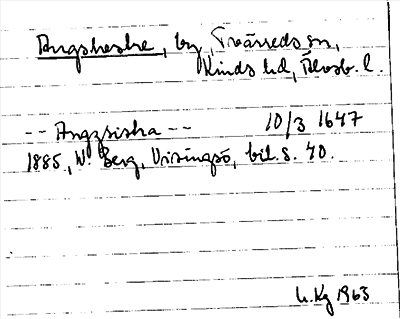 Angshestre, by, Tvärreds sn,
Kinds hd, Älvsb. l.
-- Angzsistra -- 10/3 1647
1885, W. Berg, Visingsö, bil. s. 40.
L. Kg 1963